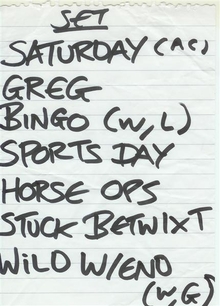 SET
SATURDAY (AC)
GREG
BINGO (W, L)
SPORTS DAY
HORSE OPS
STUCK BETWIXT
WILD W/END
(W, G)